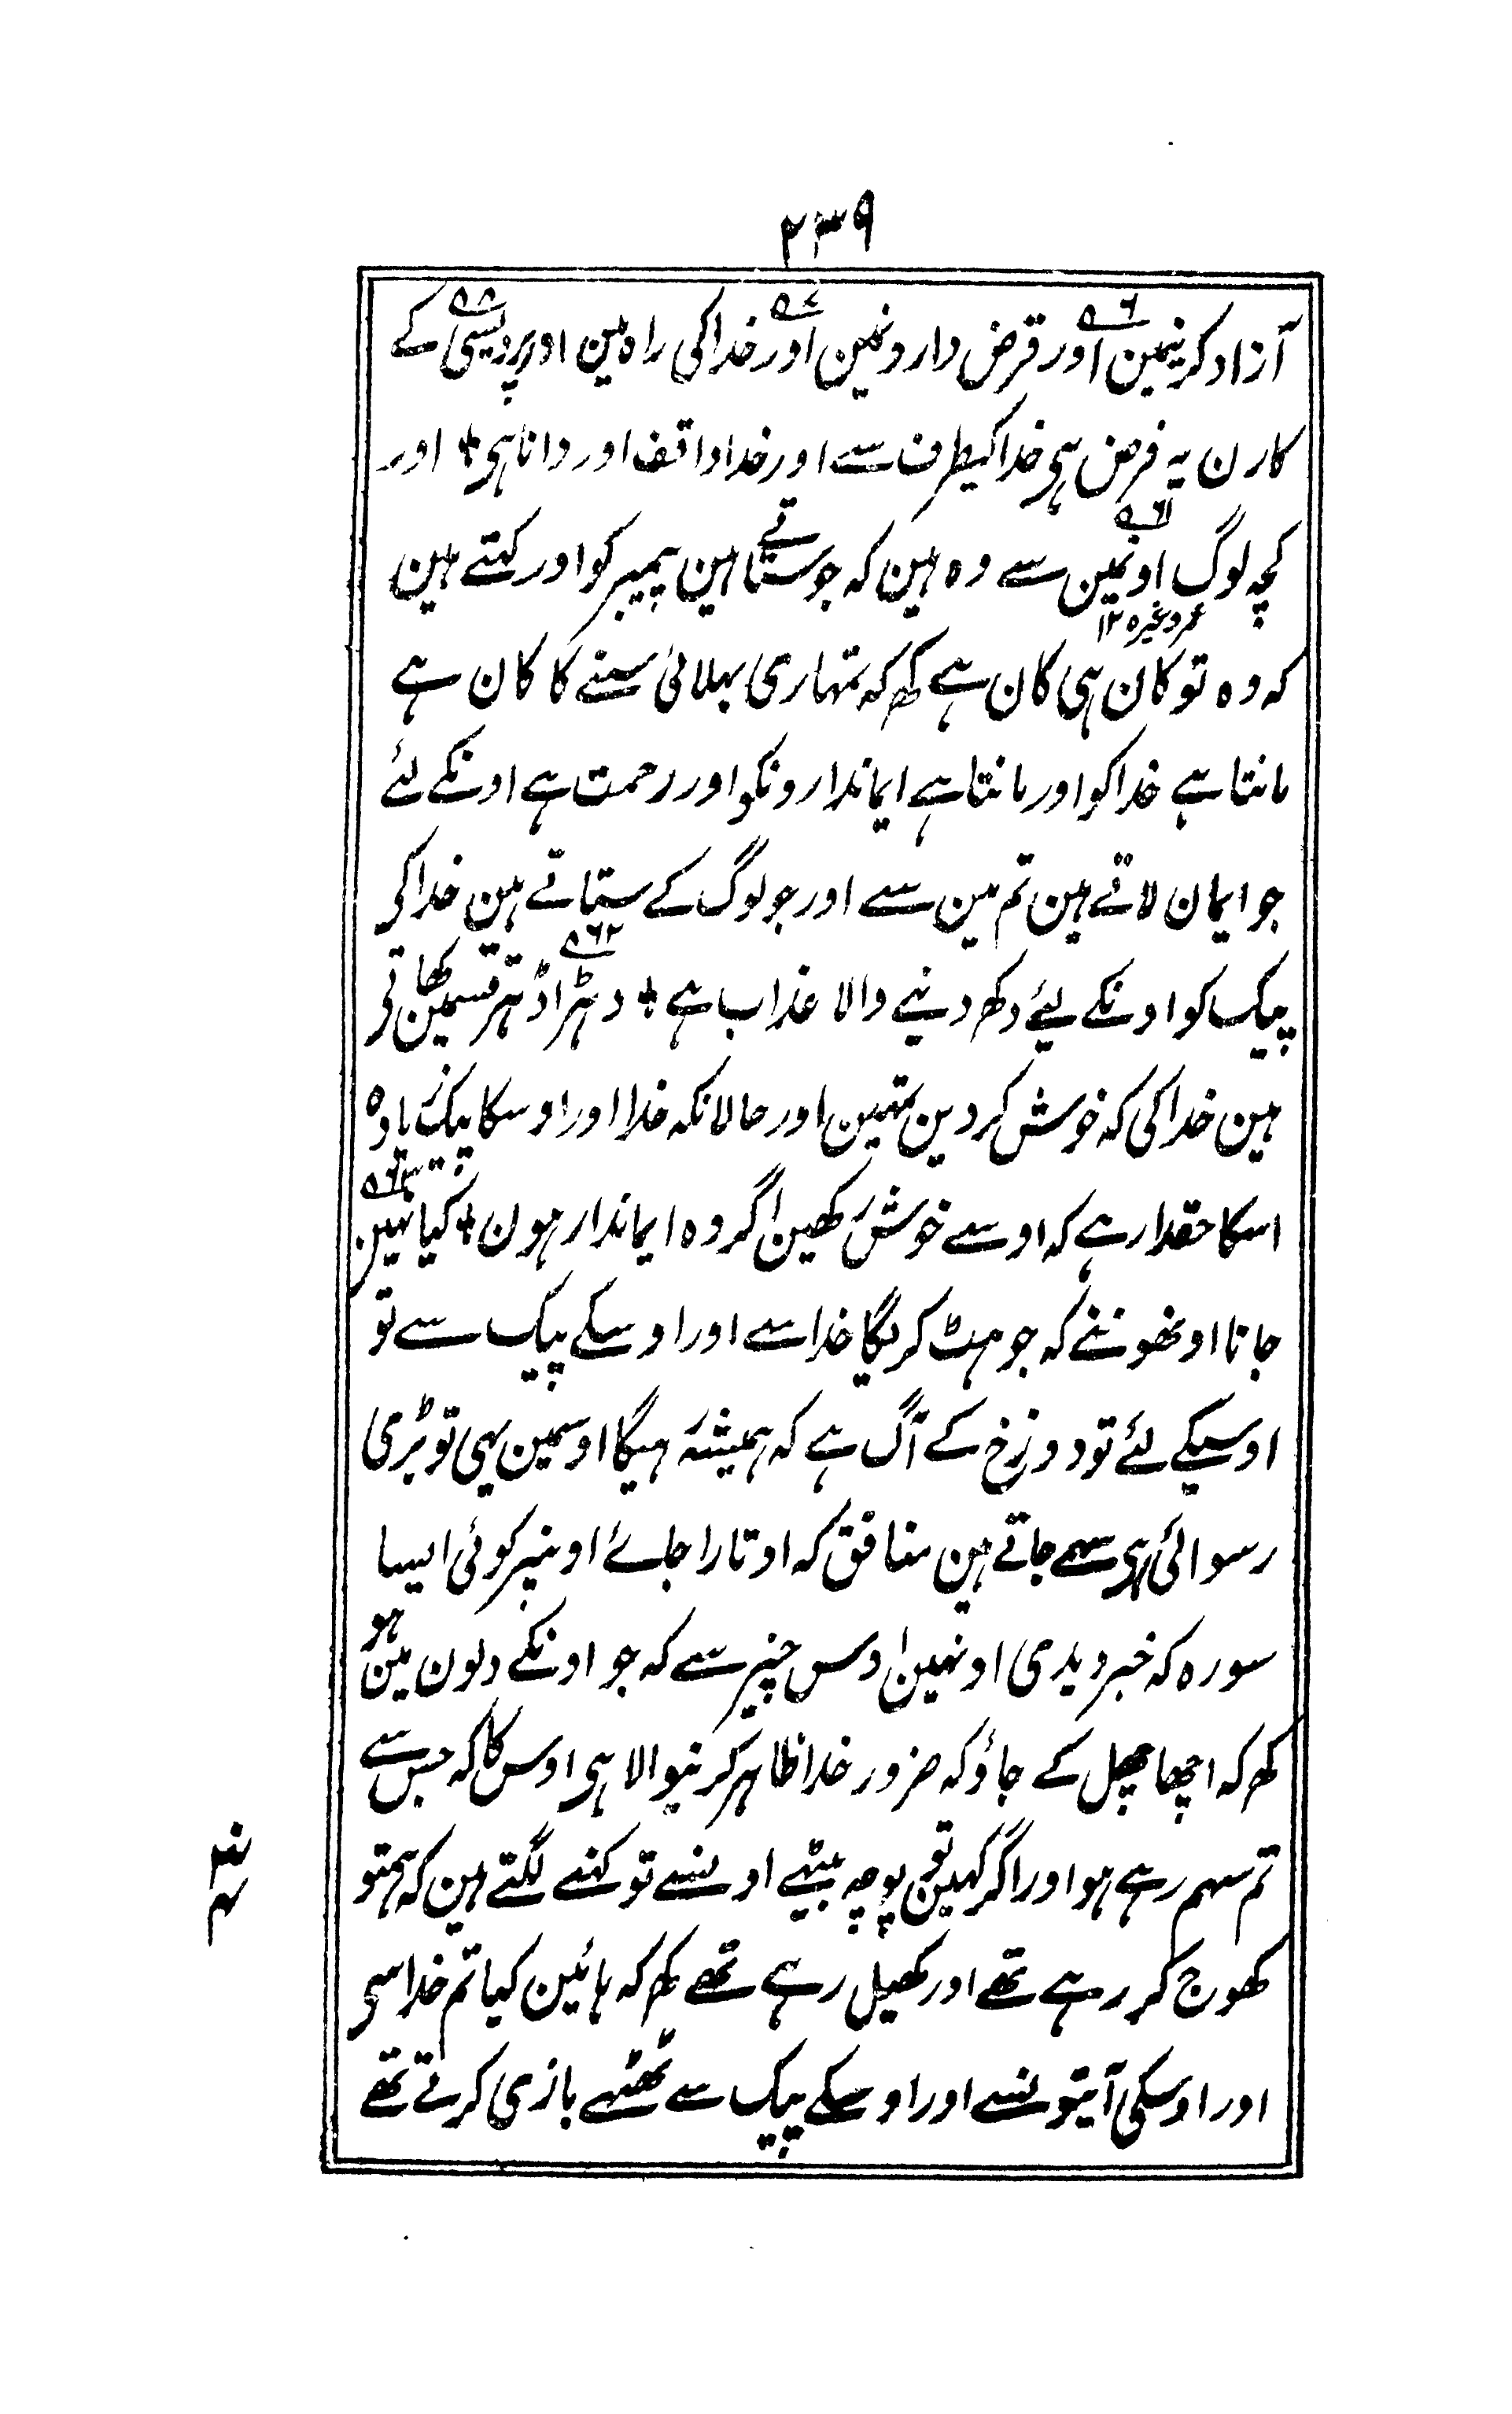 ۲۳۹
آزاد کرنیمین اور قرض دارونمین اور خدا کی راہ مین اور پردیسی کے
کارن یہ فرض ہی خدا کیطرف سے اور خدا واقف اور دانا ہی + اور
کچہ لوگ اونمین سے وہ ہین کہ جو ستاتے ہین پیمبر کو اور کہتے ہین
عمر وغیرہ ۱۲
کہ وہ تو کان ہی کان ہے کہہ کہ تمہاری بہلائی سننے کا کان ہے
مانتا ہے خدا کو اور مانتا ہے ایماندارونکو اور رحمت ہے اونکے لئے
جو ایمان لاتے ہین تم مین سے اور جو لوگ کے ستاتے ہین خدا کی
پیک کو اونکے لیئے دکھ دینے والا عذاب ہے + دہڑا دہڑ قسمین کھاتی
ہین خدا کی کہ خوش کردین تمہین اور حالانکہ خدا اور اوسکا پیک زیادہ
اسکا حقدار ہے کہ اوسے خوش رکھین اگر وہ ایماندار ہون + کیا نہین
جانا اونھونے کہ جو ہٹ کریگا خدا سے اور اوسکے پیک سے تو
اوسیکے لئے تو دوزخ کے آگ ہے کہ ہمیشہ رہیگا اوسمین یہی تو بڑی
رسوائی ہی سہمے جاتے ہین منافق کہ اوتارا جائے اونپر کوئی ایسا
سورہ کہ خبر دیدی اونہین اوس چیز سے کہ جو اونکے دلون مین ہو
کہہ کہ اچھا چہل کے جاؤ کہ ضرور خدا ظاہر کرنیوالا ہی اوس کا کہ جس سے
تم سہم رہے ہو اور اگر کہین تو پوچہ بیٹھے اونسے تو کہنے لگتے ہین کہ ہمتو
کھوج کر رہے تھے اور کھیل رہے تھے کہہ کہ ہائین کیا تم خدا سی
اور اوسکی آیتونسے اور اوسکے پیک سے ٹھٹھے بازی کرتے تھے